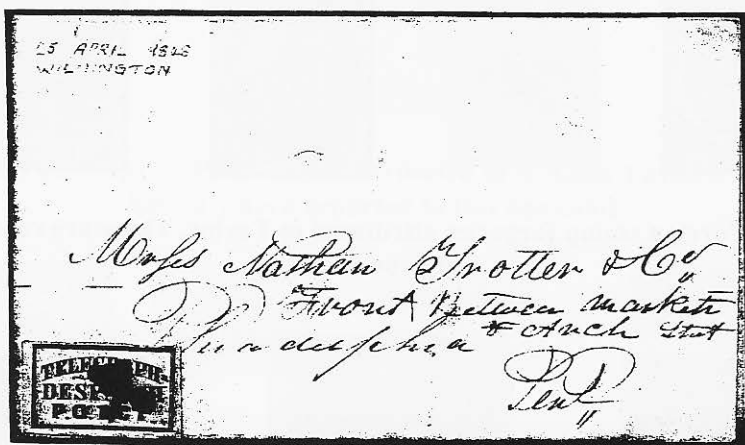 25 APRIL 1848
WILMINGTON
Messs Nathan Trotter & Co
Front Between Market
& Arch Street
Philadelphia
Pen
TELEGRAPH
DESPATCH
P.O.